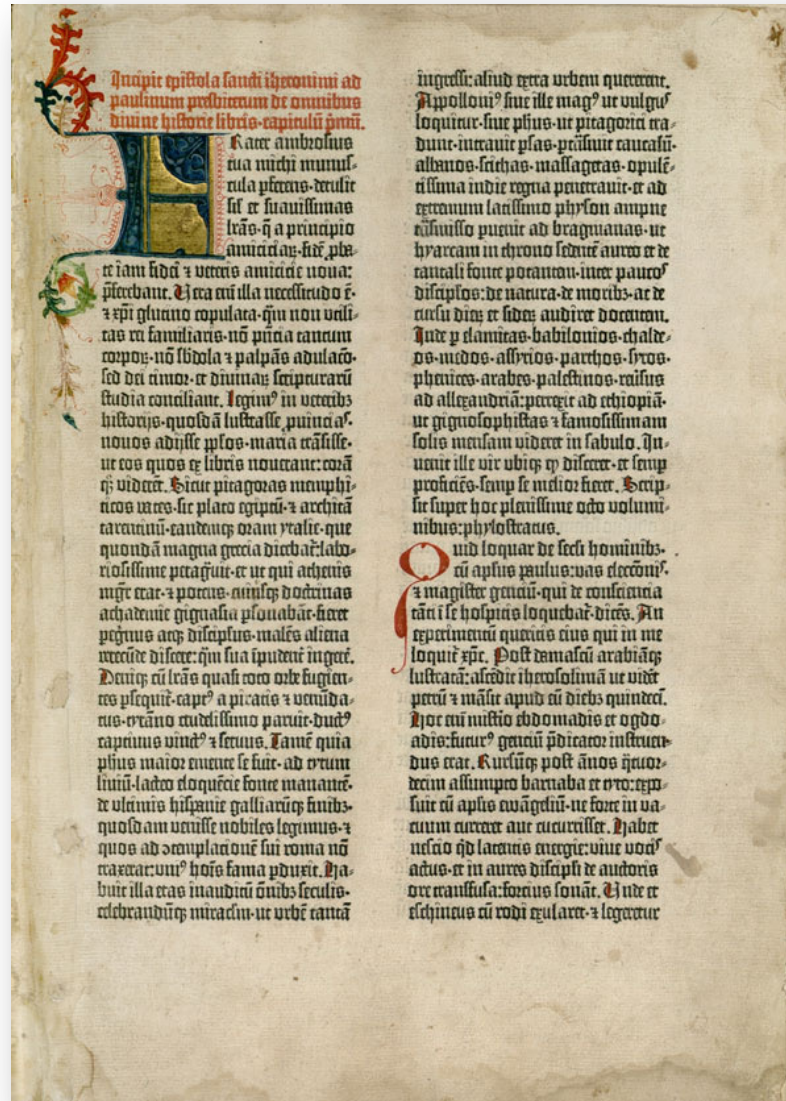 Incipit epistola sancti iheronimi ad
paulinum presbiterum de omnibus
divine historie libris·capitulū pͥmū.
Frater ambrosius
tua michi munus-
cula ꝑferens·detulit
sil̕ et suavissimas
lr̄as·q̄ a principio
amiciciaꝝ·fidē ꝓba-
te iam fidei ⁊ veteris amicicie nova:
p̄ferebant. Vera eni̅ illa necessitudo ē·
⁊ xp̄i glutino copulata·qm̄ non utili-
tas rei familiaris·nō pn̄cia tantum
corporꝝ·nō sb̄dola ⁊ palpās adulac̄o·
sed dei timor·et divinaꝝ scripturarū
studia conciliant. Legimꝰ in veteribꝫ
historijs·quosdā lustrasse ꝓvīcias·
novos adijsse ppl̄os·maria trāsisse·
ut eos quos ex libris noverant: corā
qꝫ viderēt. Sicut pitagoras memphi-
ticos vates·sic plato egiptū·⁊ architā
tarentinū·eandemqꝫ oram ytalie·que
quondā magna grecia dicebat̄: labo-
riosissime peragͣvit·et ut qui athenis
mgr̄ erat·⁊ potens·cuiusqꝫ doctrinas
achademie gignasia ꝑsonabāt·fieret
peg̍nus atqꝫ discipl̄us·malēs aliena
verecūde discere: qm̄ sua īpudent̄ ingere̅.
Deniqꝫ cū lr̄as quasi toto orbe fugien-
tes ꝑsequit̄·captꝰ a piratis ⁊ venūda-
tus·tyrāno crudelissimo paruit·ductꝰ
captivus vinctꝰ ⁊ servus. Tamē quia
phūs maior emente se fuit·ad tytum
liviū·lacteo eloquēcie fonte manantē·
de ultimis hispanie galliarūqꝫ finibꝫ·
quosdam venisse nobiles legimus·⁊
quos ad ꝯtemplacionē sui roma nō
traxerat: uniꝰ hoīs fama ꝑduxit. Ha-
buit illa etas inauditū ōnibꝫ seculis·
celebrandūqꝫ miracl̄m·ut urbē tantā
ingressi: aliud extra urbem quererent.
Appolloniꝰ sive ille magꝰ ut vulgus
loquitur·sive phūs·ut pitagorici tra-
dunt·intravit ꝑsas·ꝑtrāsivit caucasū·
albanos·scithas·massagetas·opulē-
tissima indie regna penetravit·et ad
extremum latissimo physon ampne
trāsmisso ꝑvenit ad bragmanas·ut
hyarcam in throno sedentē aureo et de
tantali fonte potantem·inter paucos
discipl̄os: de natura·de moribꝫ·ac de
cursu dieꝝ et sideꝝ audiret docentem.
Inde ꝑ elamitas·babilonios·chalde-
os·medos·assyrios·parthos·syros·
phenices·arabes·palestinos·rev̄sus
ad allexandriā: perrexit ad ethiopiā·
ut gignosophistas ⁊ famosissimam
solis mensam videret in sabulo. In-
venit ille vir ubiqꝫ qͦ disceret·et semꝑ
proficiēs·semꝑ se melior fieret. Scrip-
sit super hoc plenissime octo volumi-
nibus: phylostratus.
Quid loquar de secl̄i hominibꝫ·
cū apl̄us paulus: vas elecc̄onis·
⁊ magister genciū·qui de consciencia
tāti ī se hospitis loquebat̄·dicēs. An
experimentū queritis eius qui in me
loquit̄ xp̄c. Post damascū arabiāqꝫ
lustratā: ascēdit iherosolimā ut videt̄
petrū ⁊ māsit apud eū diebꝫ quindeci̅.
Hoc eni̅ misterio ebdomadis et ogdo-
adis: futurꝰ genciū p̄dicator instruen-
dus erat. Rursūqꝫ post ānos qͣtuor-
decim assumpto barnaba et tyto: expo-
suit cū apl̄is ewāgeliū·ne forte in va-
cuum curreret aut cucurrisset. Habet
nescio qd̄ latentis energie: vive vocis
actus·et in aures discipl̄i de auctoris
ore transfusa: forcius sonāt. Unde et
eschineus cū rodi exularet·⁊ legeretur